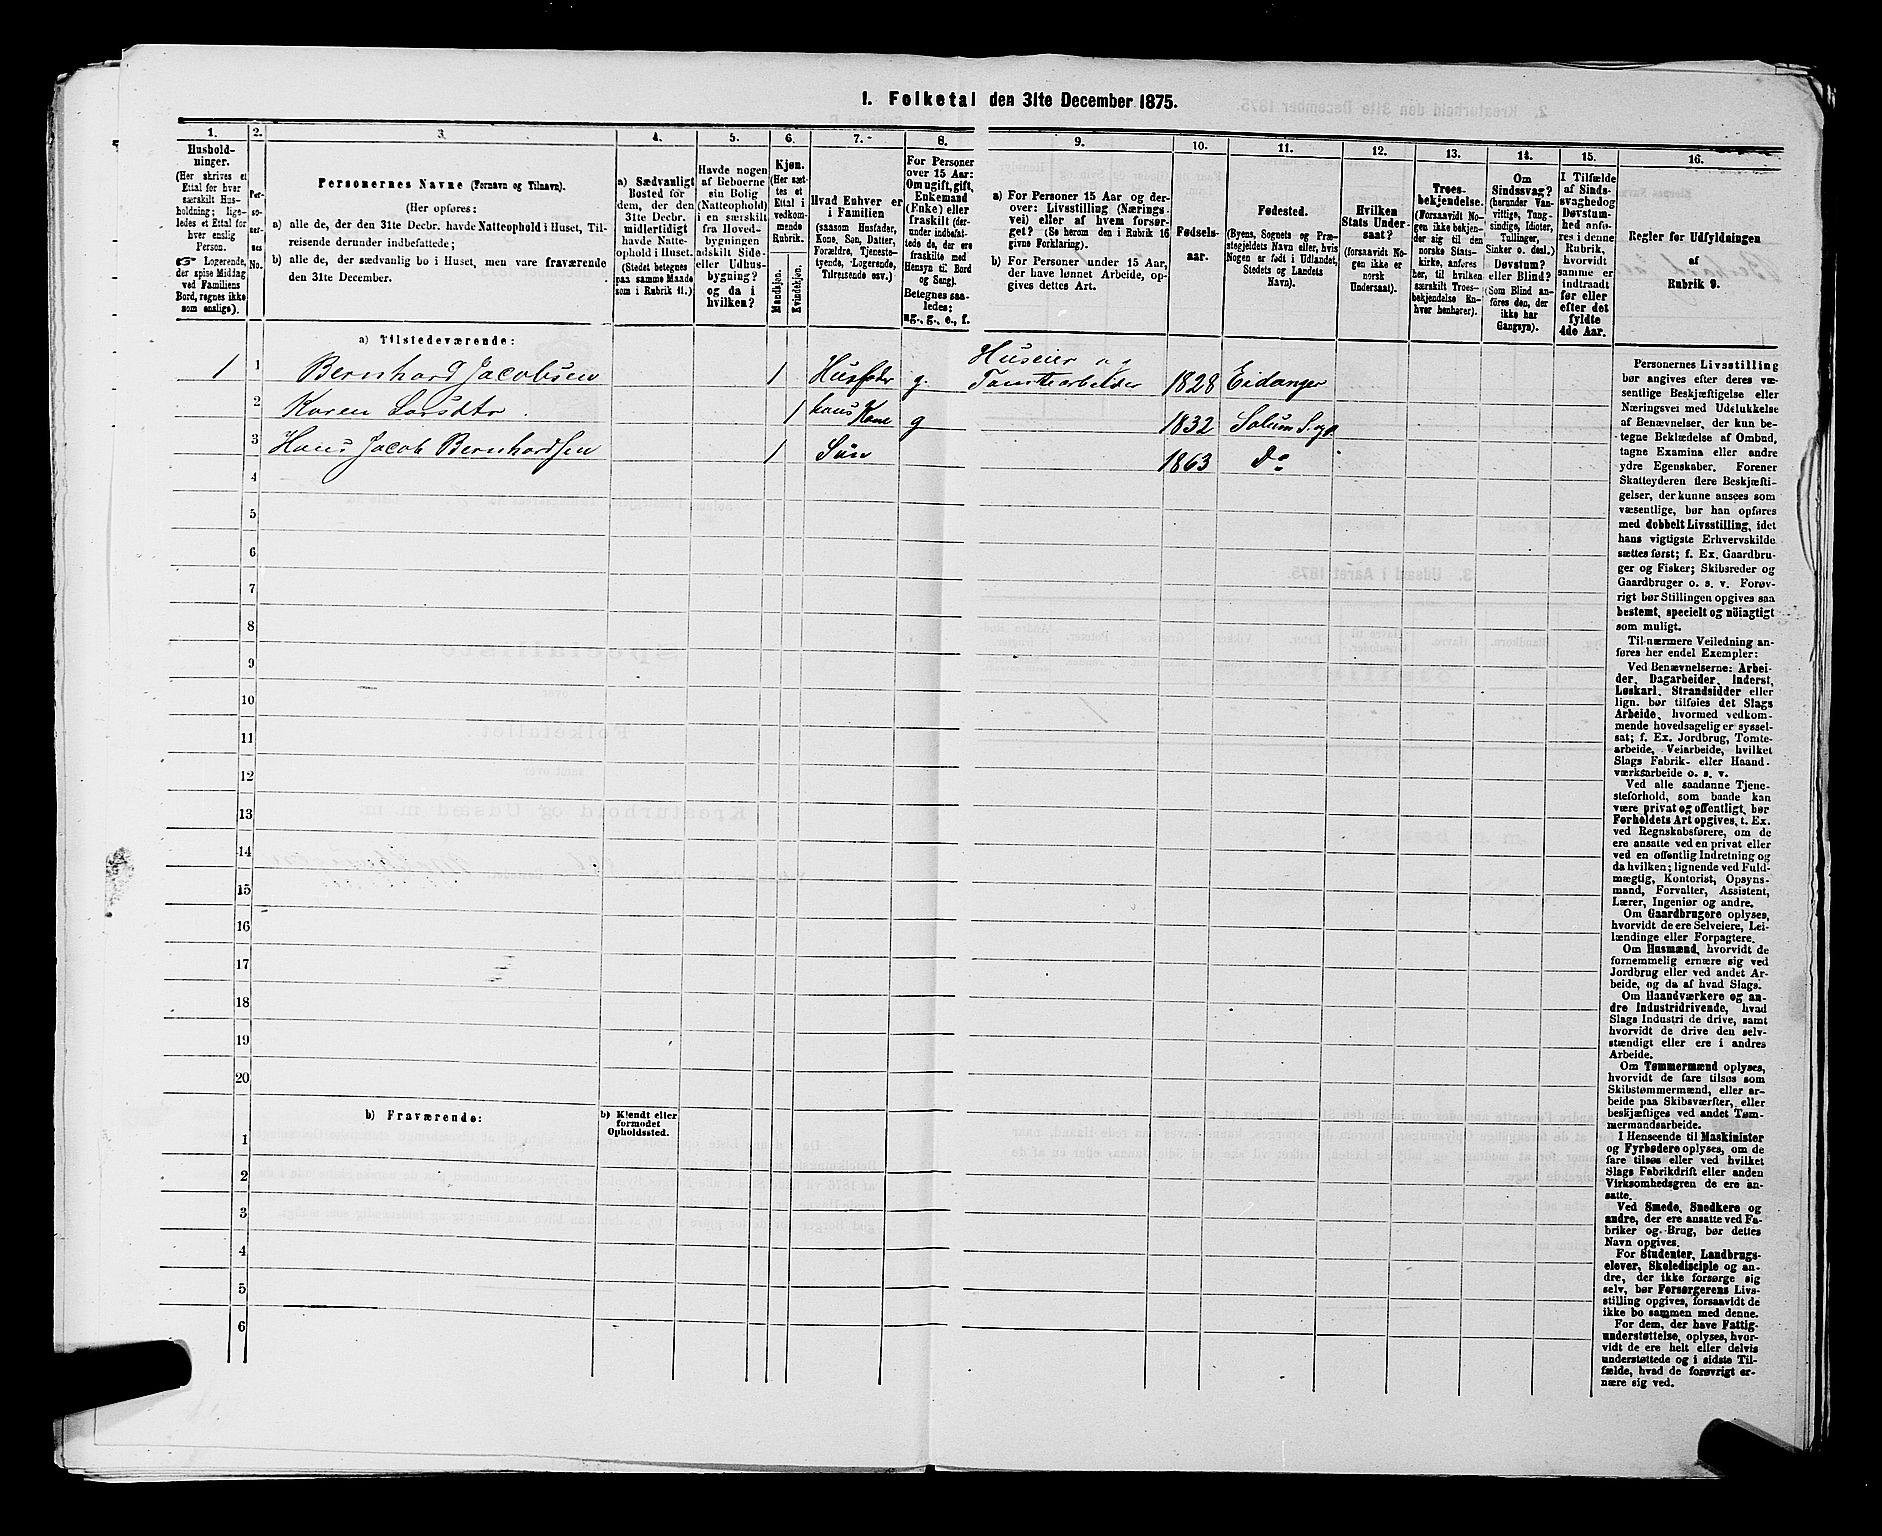 1. Folketal den 31te December 1875.
1.
2.
3.
4.
5.
6.
7.
8.
9.
10.
11.
12.
13.
14.
15.
16.
Hushold-
ninger.
(Her skrives et
Ettal for hver
særskilt Hus-
holdning; lige-
ledes et Ettal for
hver enslig
Person.
☞ Logerende,
der spise Middag
ved Familiens
Bord, regnes ikke
som enslige).
Per-
so-
ner-
nes
No.
Personernes Navne (Fornavn og Tilnavn).
(Her opføres:
a) alle de, der den 31te Decbr. havde Natteophold i Huset, Til-
reisende derunder indbefattede;
b) alle de, der sædvanlig bo i Huset, men vare fraværende
den 31te December.
a) Sædvanligt
Bosted for
dem, der den
31te Decbr.
midlertidigt
havde Natte-
ophold i Huset.
(Stedet betegnes
paa samme Maade
som i Rubrik 11.)
Havde nogen
af Beboerne
sin Bolig
(Natteophold)
i en særskilt
fra Hoved-
bygningen
adskilt Side-
eller Udhus-
bygning?
og da i
hvilken?
Kjøn.
(Her sæt-
tes et
Ettal i
vedkom-
mende
Rubrik.
Mandkjøn.
Kvindekjøn.
Hvad Enhver er
i Familien
(saasom Husfader,
Kone, Søn, Datter,
Forældre, Tjeneste-
tyende, Logerende,
Tilreisende osv.)
For Personer
over 15 Aar:
Om ugift, gift,
Enkemand
(Enke) eller
fraskilt (der-
under indbefat-
tede de, der ere
fraskilte med
Hensyn til Bord
og Seng).
Betegnes saa-
ledes:
ug., g., e., f.
a) For Personer 15 Aar og der-
over: Livsstilling (Nærings-
vei) eller af hvem forsør-
get? (Se herom den i Rubrik 16
givne Forklaring).
b) For Personer under 15 Aar,
der have lønnet Arbeide, op-
gives dettes Art.
Fødsels-
aar.
Fødested.
(Byens, Sognets og Præ-
stegjeldets Navn eller, hvis
Nogen er født i Udlandet,
Stedets og Landets
Navn).
Hvilken
Stats Under-
saat?
(forsaavidt No-
gen ikke er
norsk
Undersaat).
Troes-
bekjendelse.
(Forsaavidt No-
gen ikke bekjen-
der sig til den
norske Stats-
kirke, anføres
her, til hvilken
særskilt Troes-
bekjendelse En-
hver henhører).
Om
Sindssvag?
(herunder Van-
vittige, Tung-
sindige, Idioter,
Tullinger,
Sinker o. desl.)
Døvstum?
eller Blind?
(Som Blind an-
føres den, der
ikke har
Gangsyn).
I Tilfælde
af Sinds-
svaghed og
Døvstum-
hed anfø-
res i denne
Rubrik,
hvorvidt
samme er
indtraadt
før eller
efter det
fyldte
4de Aar.
Regler for Udfyldningen
af
Rubrik 9.
a) Tilstedeværende:
1 1 Bernhard Jacobsen 1 Husfader g. Huseier og
Tomtearbeider 1828 Eidanger
2 Karen Larsdtr. 1 hans Kone g 1832 Solum S. og P.
3 Hans Jacob Bernhardsen 1 Søn 1863 Do
4
5
6
7
8
9
10
11
12
13
14
15
16
17
18
19
20
b) Fraværende:
b) Kjendt eller
formodet
Opholdssted.
1
2
3
4
5
6
Personernes Livsstilling
bør angives efter deres væ-
sentlige Beskjæftigelse eller
Næringsvei med Udelukkelse
af Benævnelser, der kun be-
tegne Beklædelse af Ombud,
tagne Examina eller andre
ydre Egenskaber. Forener
Skatteyderen flere Beskjæfti-
gelser, der kunne ansees som
væsentlige, bør han opføres
med dobbelt Livsstilling, idet
hans vigtigste Erhvervskilde
sættes først; f. Ex. Gaardbru-
ger og Fisker; Skibsreder og
Gaardbruger o. s. v. Forøv-
rigt bør Stillingen opgives saa
bestemt, specielt og nöiagtigt
som muligt.
Til nærmere Veiledning an-
føres her endel Exempler:
Ved Benævnelserne: Arbei-
der, Dagarbeider, Inderst,
Løskarl, Strandsidder eller
lign. bør tilføies det Slags
Arbeide, hvormed vedkom-
mende hovedsagelig er syssel-
sat; f. Ex. Jordbrug, Tomte-
arbeide, Veiarbeide, hvilket
Slags Fabrik- eller Haand-
værksarbeide o. s. v.
Ved alle saadanne Tjene-
steforhold, som baade kan
være privat og offentligt, bør
Forholdets Art opgives, t. Ex.
ved Regnskabsførere, om de
ere ansatte ved en privat eller
ved en offentlig Indretning og
da hvilken; lignende ved Fuld-
mægtig, Kontorist, Opsyns-
mand, Forvalter, Assistent,
Lærer, Ingeniør og andre.
Om Gaardbrugere oplyses,
hvorvidt de ere Selveiere, Lei-
lændinge eller Forpagtere.
Om Husmænd, hvorvidt de
fornemmelig ernære sig ved
Jordbrug eller ved andet Ar-
beide, og da af hvad Slags.
Om Haandværkere og an-
dre Industridrivende, hvad
Slags Industri de drive, samt
hvorvidt de drive den selv-
stændigt eller ere i andres
Arbeide.
Om Tømmermænd oplyses,
hvorvidt de fare tilsøs som
Skibstømmermænd, eller ar-
beide paa Skibsværfter, eller
beskjæftiges ved andet Tøm-
mermandsarbeide.
I Henseende til Maskinister
og Fyrbødere oplyses, om de
fare tilsøs eller ved hvilket
Slags Fabrikdrift eller anden
Virksomhedsgren de ere an-
satte.
Ved Smede, Snedkere og
andre, der ere ansatte ved Fa-
briker og Brug, bør dettes
Navn opgives.
For Studenter, Landbrugs-
elever, Skoledisciple og an-
dre, der ikke forsørge sig
selv, bør Forsørgerens Livs-
stilling opgives, forsaavidt de
ikke bo sammen med denne.
For dem, der have Fattig-
understøttelse, oplyses, hvor-
vidt de ere helt eller delvis
understøttede og i sidste Til-
fælde, hvad de forøvrigt er-
nære sig ved.